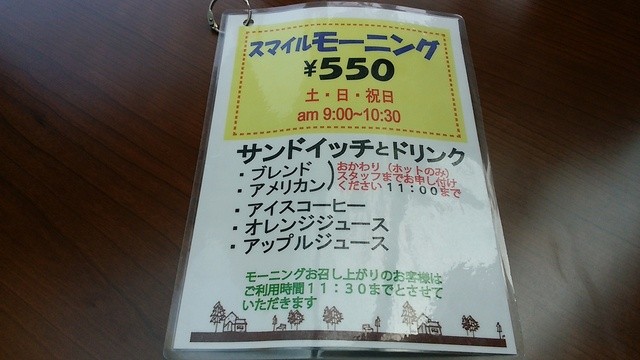 スマイルモーニング
¥550
土・日・祝日
am 9:00~10:30
サンドイッチとドリンク
・ブレンド
・アメリカン
おかわり（ホットのみ）
スタッフまでお申し付け
ください 11:00まで
・アイスコーヒー
・オレンジジュース
・アップルジュース
モーニングお召し上がりのお客様は
ご利用時間11:30までとさせて
いただきます